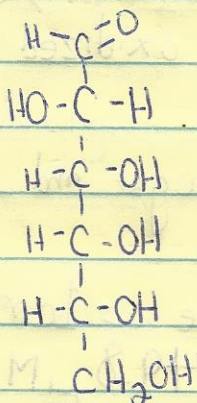 H-C=O
HO-C-H
H-C-OH
H-C-OH
H-C-OH
CH₂OH